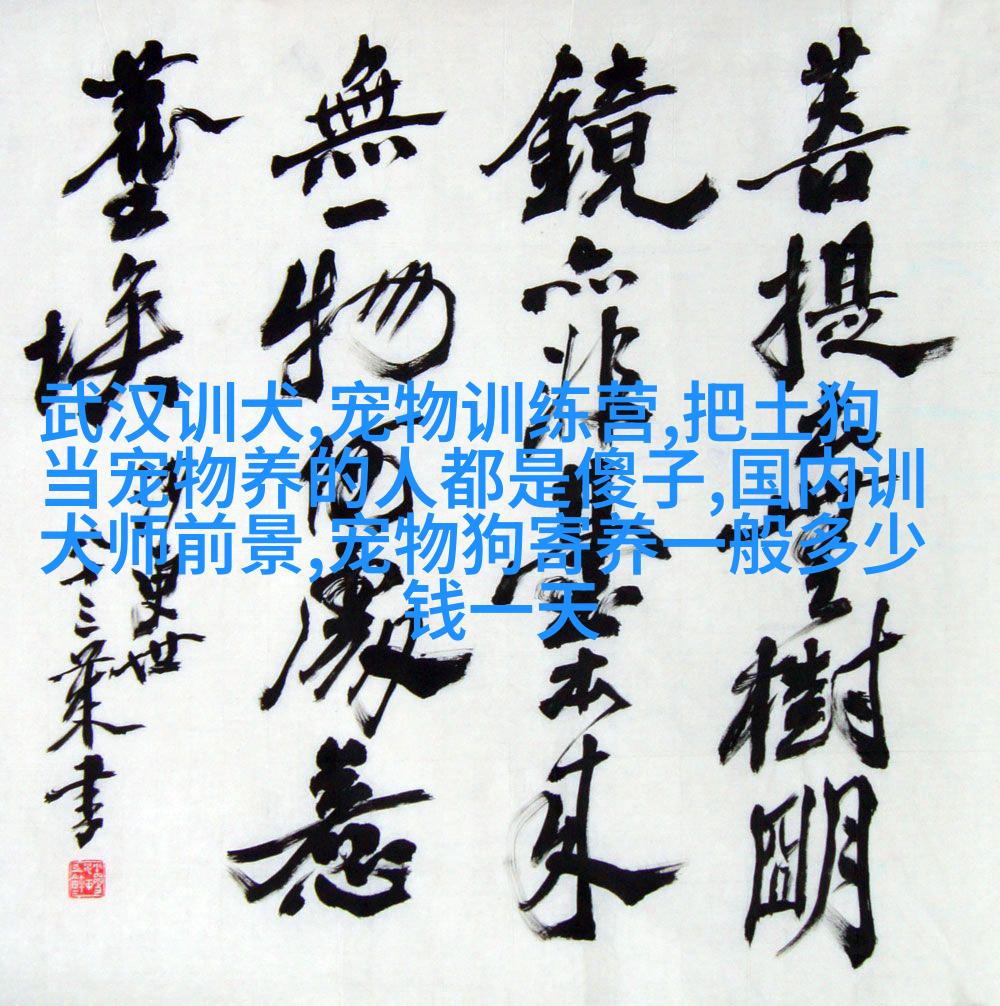 武汉训犬,宠物训练营,把土狗
当宠物养的人都是傻子,国内训
犬师前景,宠物狗寄养一般多少
钱一天
菩提樹明
鏡亦非臺本來
無一物何處惹
塵埃
書